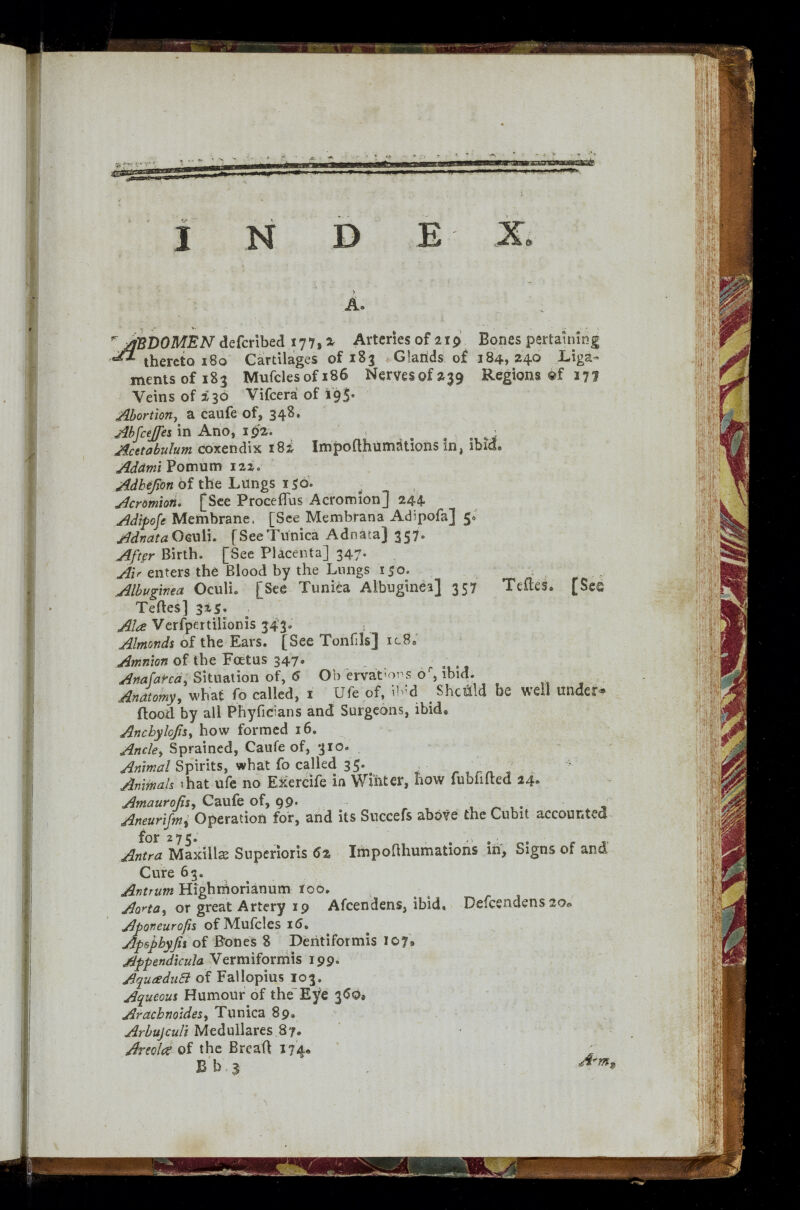 INDEX.
A.
ABDOMEN deſcribed 177, 2 Arteries of 219 Bones pertaining
thereto 180 Cartilages of 183 Glands of 184, 240 Liga-
ments of 183 Muſcles of 186 Nerves of 239 Regions of 177
Veins of 230 Viſcera of 195.
Abortion, a cauſe of, 348.
Abſceſſes in Ano, 192.
Acetabulum coxendix 182 Impoſthumations in, ibid.
Adami Pomum 122.
Adheſion of the Lungs 150.
Acromion. [See Proceſſus Acromion] 244
Adipoſe Membrane. [See Membrana Adipoſa] 5.
Adnata Oculi. [See Tunica Adnata] 357.
After Birth. [See Placenta] 347.
Air enters the Blood by the Lungs 150.
Albuginea Oculi. [See Tunica Albuginea] 357 Teſtes. [See
Teſtes] 325.
Alæ Verſpertilionis 343.
Almonds of the Ears. [See Tonſils] 108.
Amnion of the Fœtus 347.
Anaſarca, Situation of, 6 Obſervations of, ibid.
Anatomy, what ſo called, 1 Uſe of, ibid Should be well under-
ſtood by all Phyſicians and Surgeons, ibid.
Anchyloſis, how formed 16.
Ancle, Sprained, Cauſe of, 310.
Animal Spirits, what ſo called 35.
Animals that uſe no Exerciſe in Winter, how ſubſiſted 24.
Amauroſis, Cauſe of, 99.
Aneuriſm, Operation for, and its Succeſs above the Cubit accounted
for 275.
Antra Maxillæ Superioris 62 Impoſthumations in, Signs of and
Cure 63.
Antrum Highmorianum 100.
Aorta, or great Artery 19 Aſcendens, ibid. Deſcendens 20.
Aponeuroſis of Muſcles 16.
Apophyſis of Bones 8 Dentiformis 107.
Appendicula Vermiformis 199.
Aquæduct of Fallopius 103.
Aqueous Humour of the Eye 360.
Arachnoides, Tunica 89.
Arbuſculi Medullares 87.
Areolæ of the Breaſt 174.
B b 3 Arm,